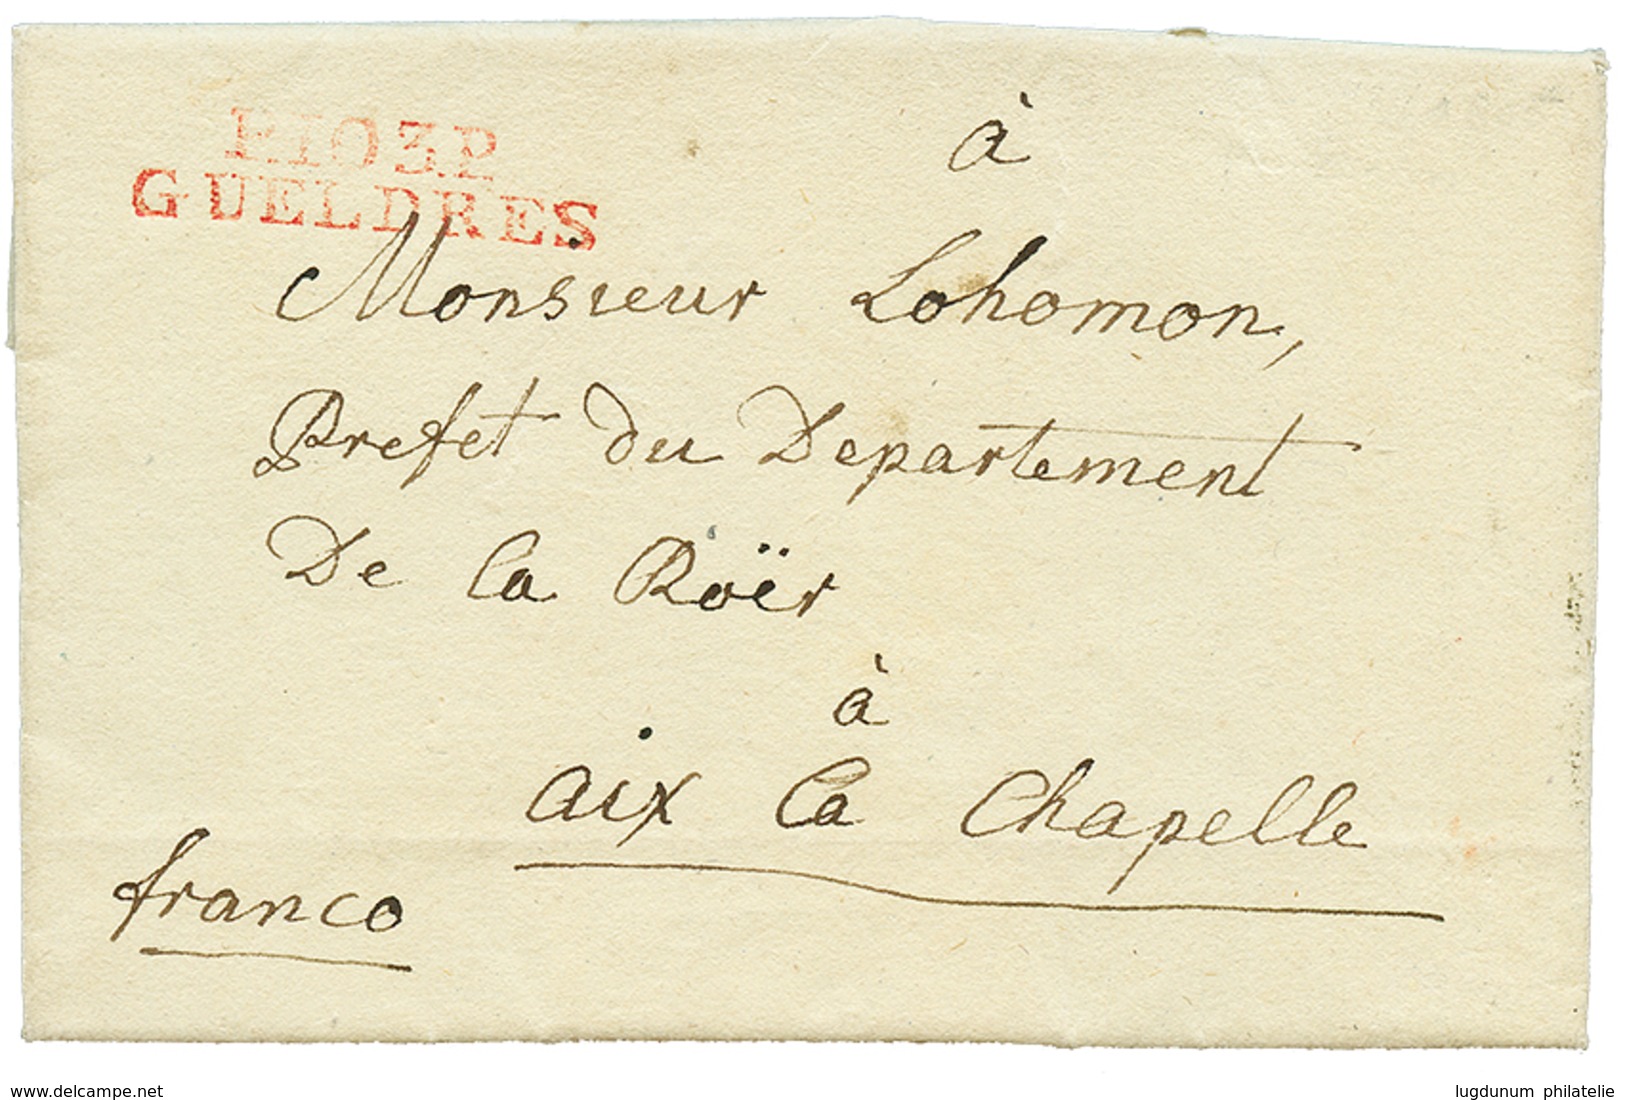 P.103.P.
GUELDRES
à
Monsieur Lohomon,
Prefet du Departement
De la Roër
à
aix la Chapelle
franco
delcampe.net
lugdunum philatelie